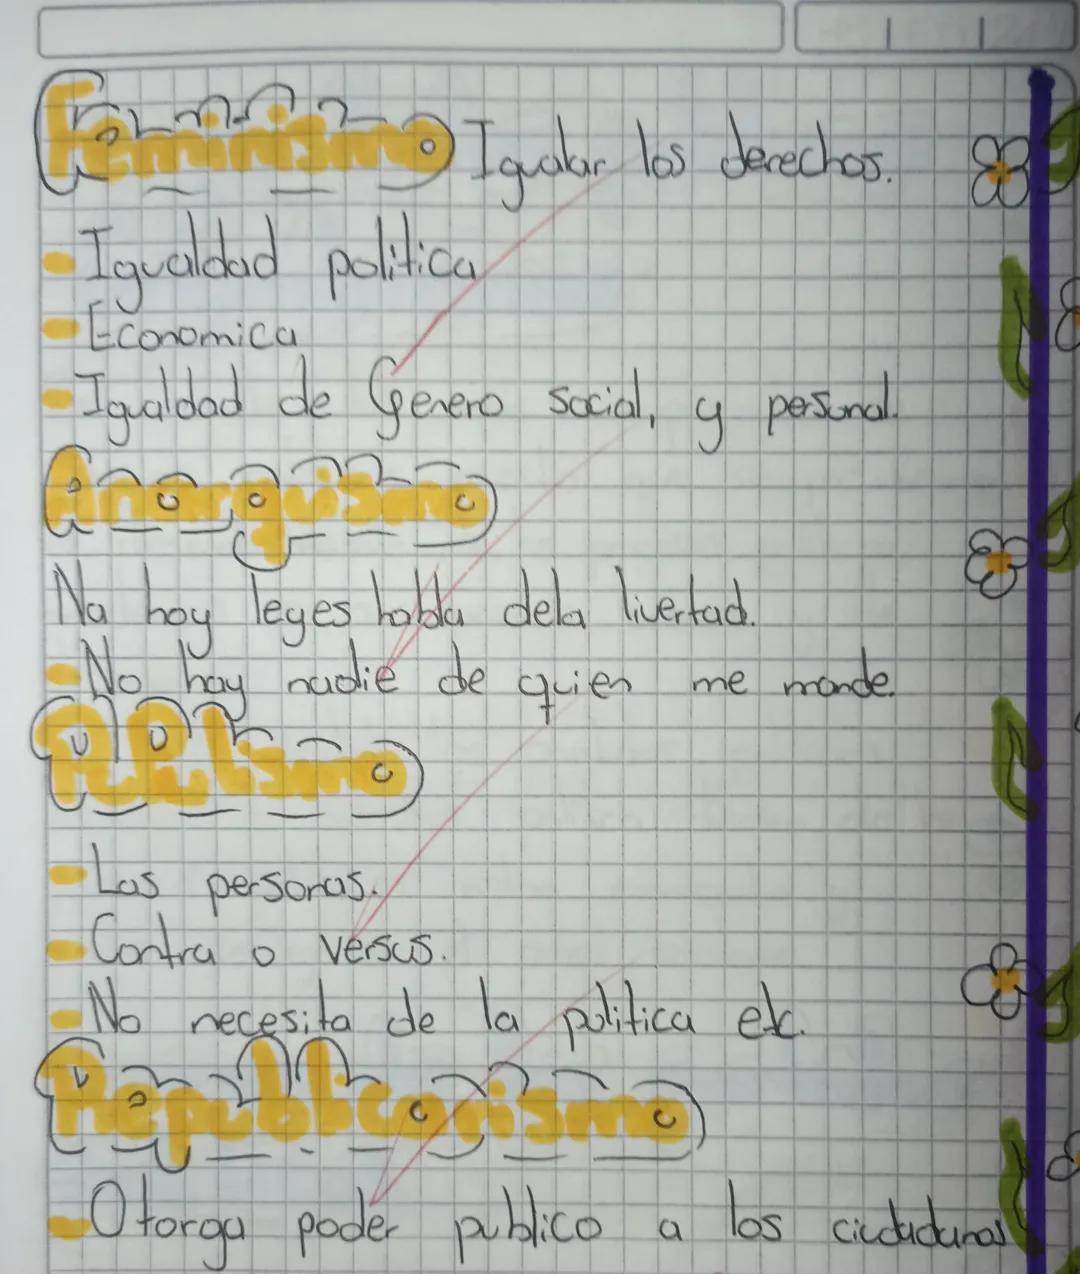 Feminismo Igualar los derechos.
- Igualdad politica
- Economica
- Igualdad de Genero social, y personal.
Anarquismo
Na hay leyes habla dela livertad.
- No hay nadie de quien me mande.
- Las personas.
- Contra o versus.
- No necesita de la politica etc.
Republicanismo
- Otorga poder publico a los ciudadanos